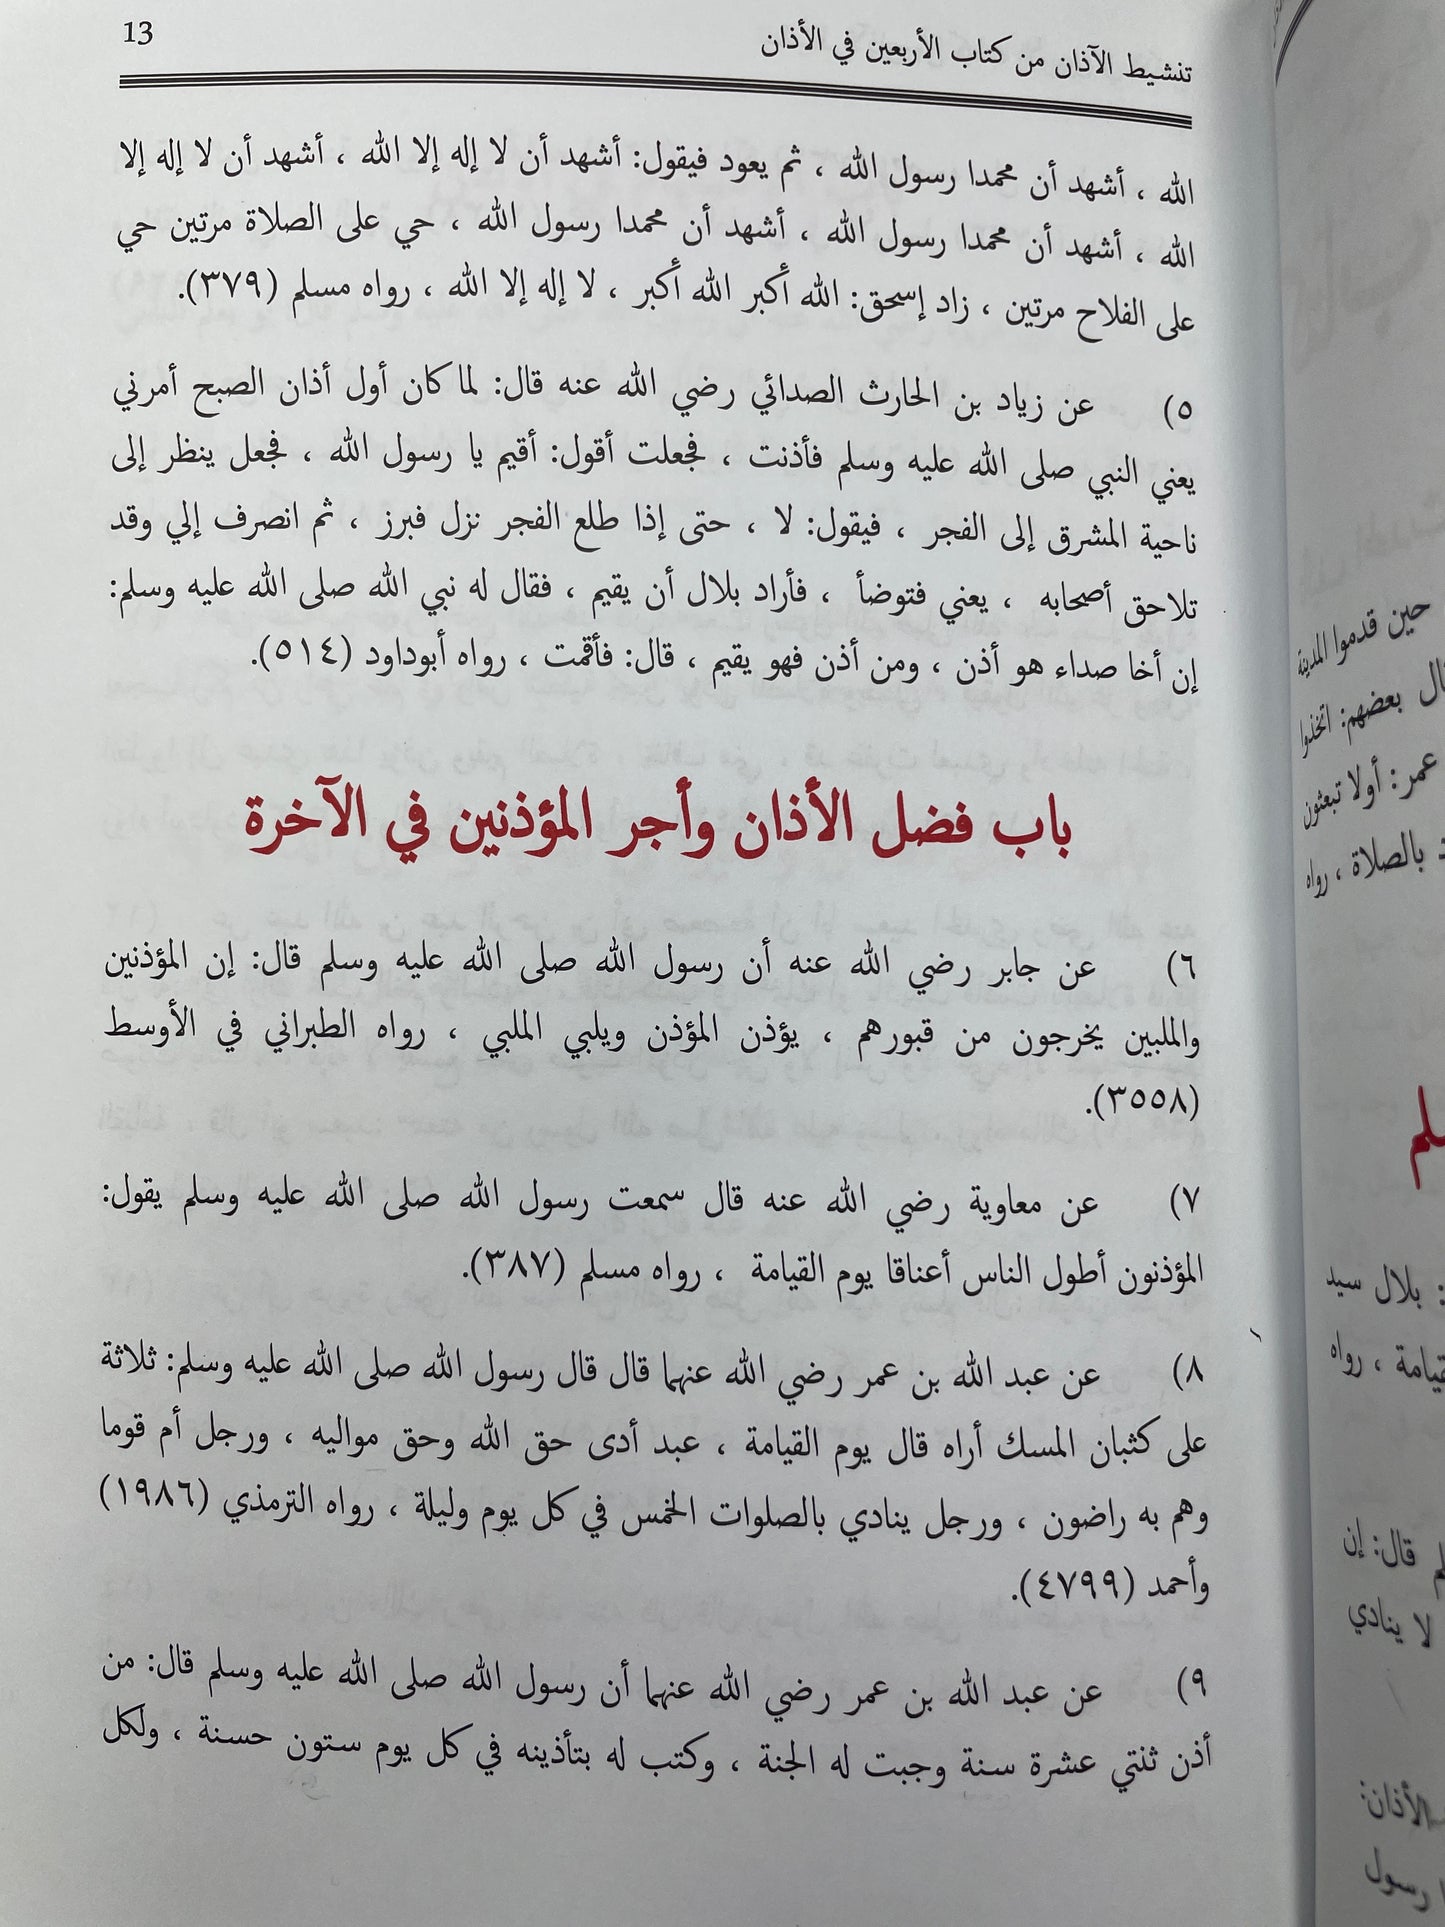 تنشيط الآذان من كتاب الأربعين في الأذان
13
الله ، أشهد أن محمدا رسول الله ، ثم يعود فيقول: أشهد أن لا إله إلا الله ، أشهد أن لا إله إلا
الله ، أشهد أن محمدا رسول الله ، أشهد أن محمدا رسول الله ، حي على الصلاة مرتين حي
على الفلاح مرتين ، زاد إسحق: الله أكبر الله أكبر ، لا إله إلا الله ، رواه مسلم (٣٧٩).
٥) عن زياد بن الحارث الصدائي رضي الله عنه قال: لما كان أول أذان الصبح أمرني
يعني النبي صلى الله عليه وسلم فأذنت ، فجعلت أقول: أقيم يا رسول الله ، فجعل ينظر إلى
ناحية المشرق إلى الفجر ، فيقول: لا ، حتى إذا طلع الفجر نزل فبرز ، ثم انصرف إلي وقد
تلاحق أصحابه ، يعني فتوضأ ، فأراد بلال أن يقيم ، فقال له نبي الله صلى الله عليه وسلم:
إن أخا صداء هو أذن ، ومن أذن فهو يقيم ، قال: فأقمت ، رواه أبوداود (٥١٤).
باب فضل الأذان وأجر المؤذنين في الآخرة
٦) عن جابر رضي الله عنه أن رسول الله صلى الله عليه وسلم قال: إن المؤذنين
والملبين يخرجون من قبورهم ، يؤذن المؤذن ويلبي الملبي ، رواه الطبراني في الأوسط
(٣٥٥٨).
٧) عن معاوية رضي الله عنه قال سمعت رسول الله صلى الله عليه وسلم يقول:
المؤذنون أطول الناس أعناقا يوم القيامة ، رواه مسلم (٣٨٧).
٨) عن عبد الله بن عمر رضي الله عنهما قال قال رسول الله صلى الله عليه وسلم: ثلاثة
على كثبان المسك أراه قال يوم القيامة ، عبد أدى حق الله وحق مواليه ، ورجل أم قوما
وهم به راضون ، ورجل ينادي بالصلوات الخمس في كل يوم وليلة ، رواه الترمذي (١٩٨٦)
وأحمد (٤٧٩٩).
٩) عن عبد الله بن عمر رضي الله عنهما أن رسول الله صلى الله عليه وسلم قال: من
أذن ثنتي عشرة سنة وجبت له الجنة ، وكتب له بتأذينه في كل يوم ستون حسنة ، ولكل
حين قدموا المدينة
بعضهم: اتخذوا
عمر: أولا تبعثون
بالصلاة ، رواه
: بلال سيد
، رواه
قال: إن
لا ينادي
الأذان:
رسول